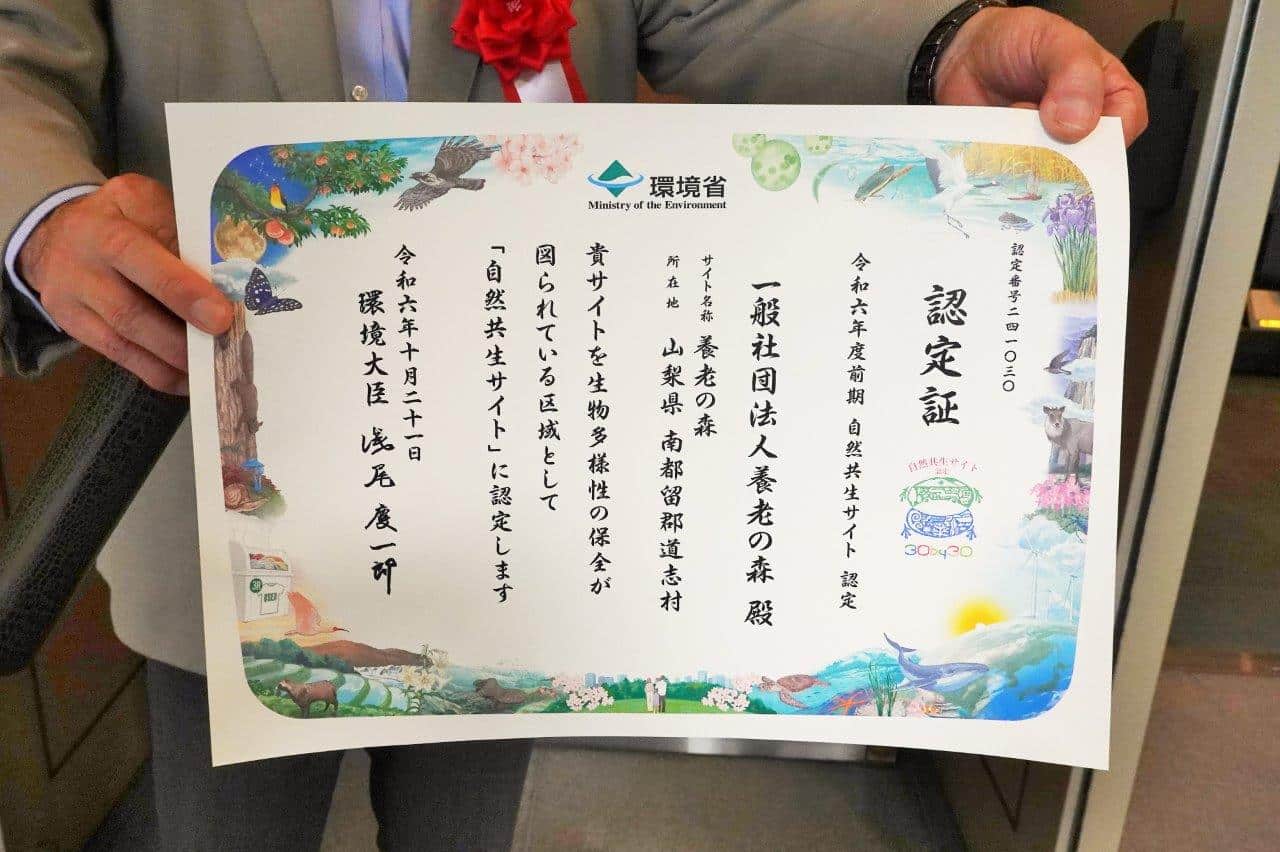 環境省
Ministry of the Environment
認定番号二四一〇三〇
認定証
自然共生サイト
認定
30by30
令和六年度前期 自然共生サイト 認定
一般社団法人養老の森 殿
サイト名称 養老の森
所在地 山梨県 南都留郡道志村
貴サイトを生物多様性の保全が
図られている区域として
「自然共生サイト」に認定します
令和六年十月二十一日
環境大臣 浅尾 慶一郎
3R
USED